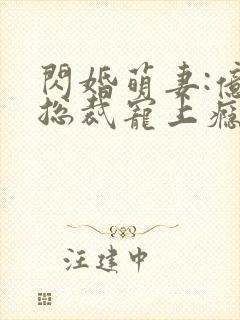 閃婚萌妻:億
总裁寵上癮
汪建中